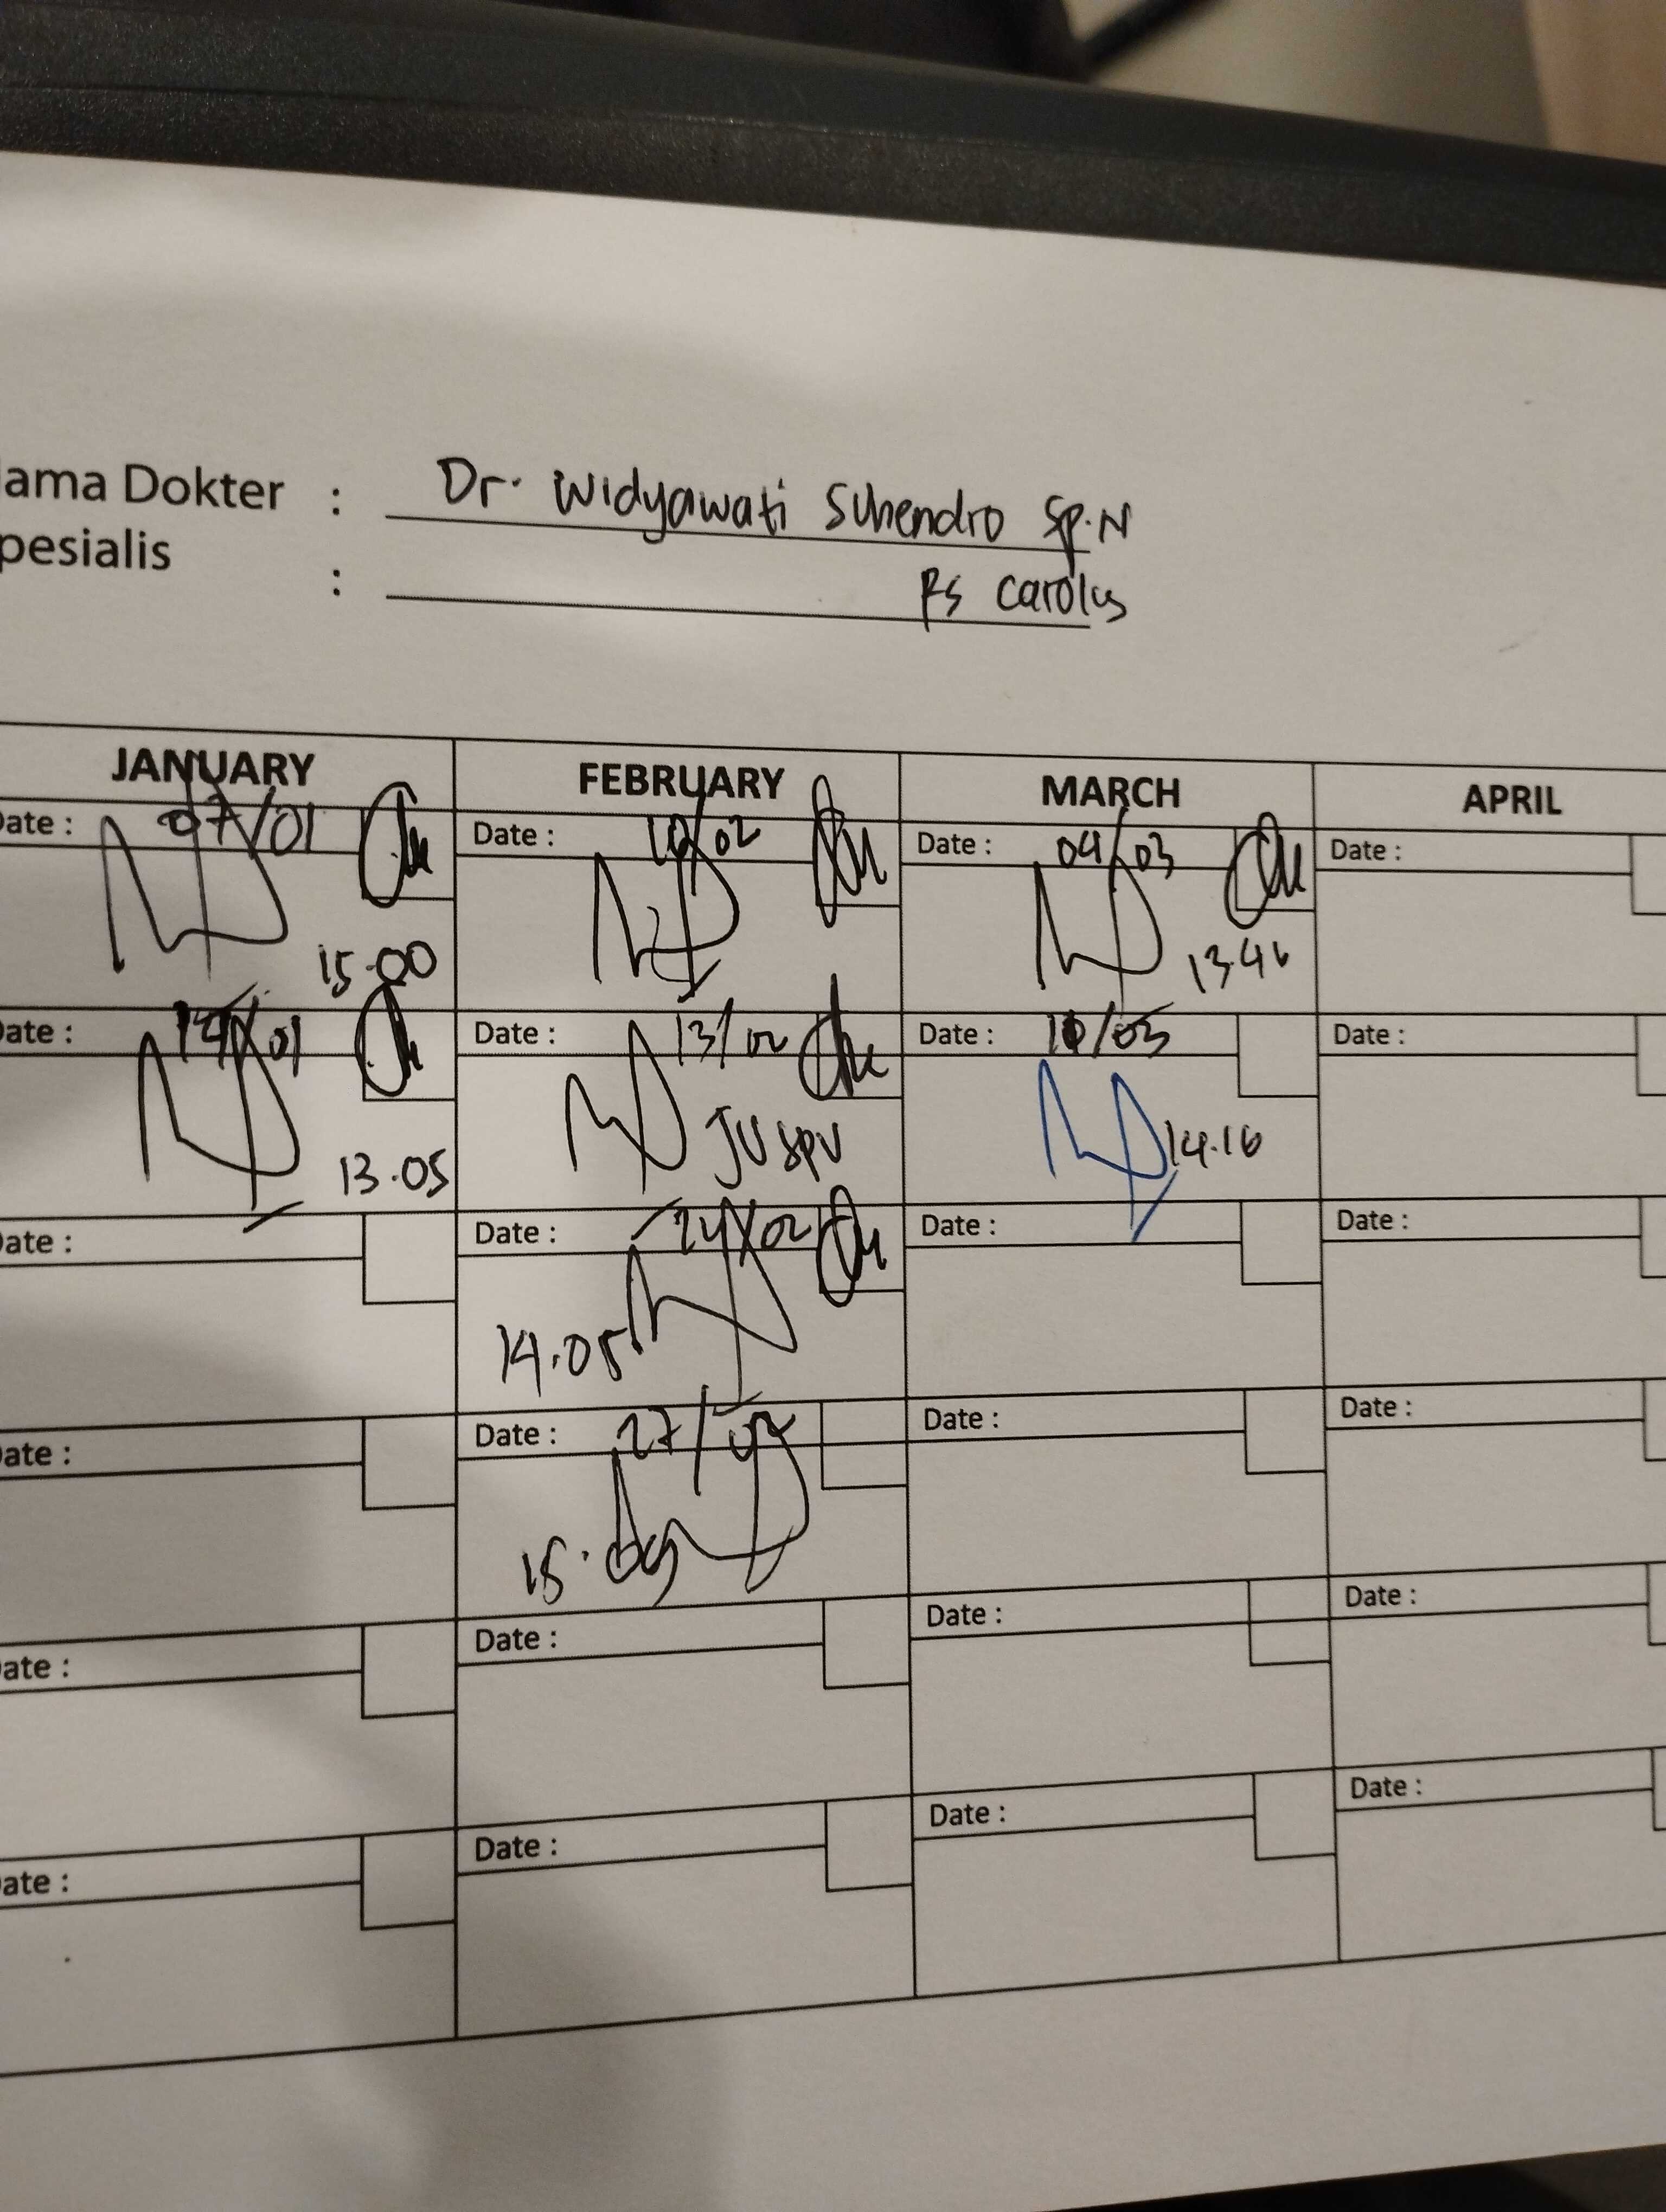 ama Dokter : Dr. Widyawati Suhendro Sp.N
pesialis : RS Carolus
JANUARY FEBRUARY MARCH APRIL
ate : 07/01 Date : 10/02 Date : 04/03 Date :
15.00 13.46
ate : 14/01 Date : 13/02 Date : 10/03 Date :
13.05 JV SPV 14.16
ate : Date : 24/02 Date : Date :
14.05
ate : Date : 27/02 Date : Date :
15.09
ate : Date : Date : Date :
ate : Date : Date : Date :